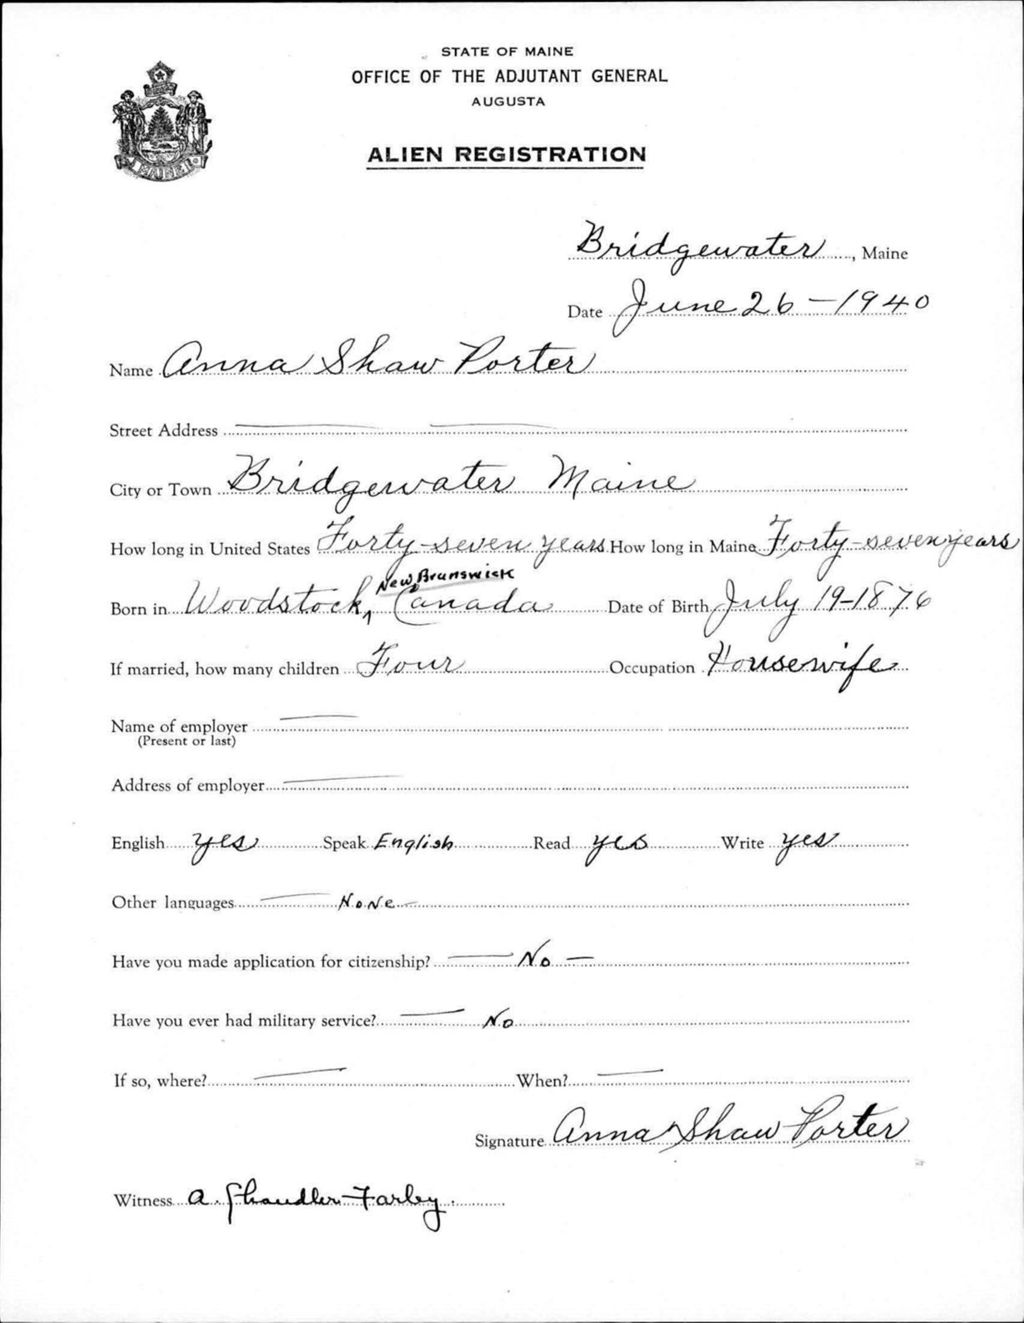 STATE OF MAINE
OFFICE OF THE ADJUTANT GENERAL
AUGUSTA
ALIEN REGISTRATION
MAINE
Bridgewater, Maine
Date June 26-1940
Name Anna Shaw Porter
Street Address
City or Town Bridgewater Maine
How long in United States Forty-seven years How long in Maine Forty-seven years
New Brunswick
Born in Woodstock, Canada Date of Birth July 19-1876
If married, how many children Four Occupation Housewife
Name of employer
(Present or last)
Address of employer
English yes Speak English Read yes Write yes
Other languages None
Have you made application for citizenship? No
Have you ever had military service? No
If so, where? When?
Signature Anna Shaw Porter
Witness A. Chandler Farley.